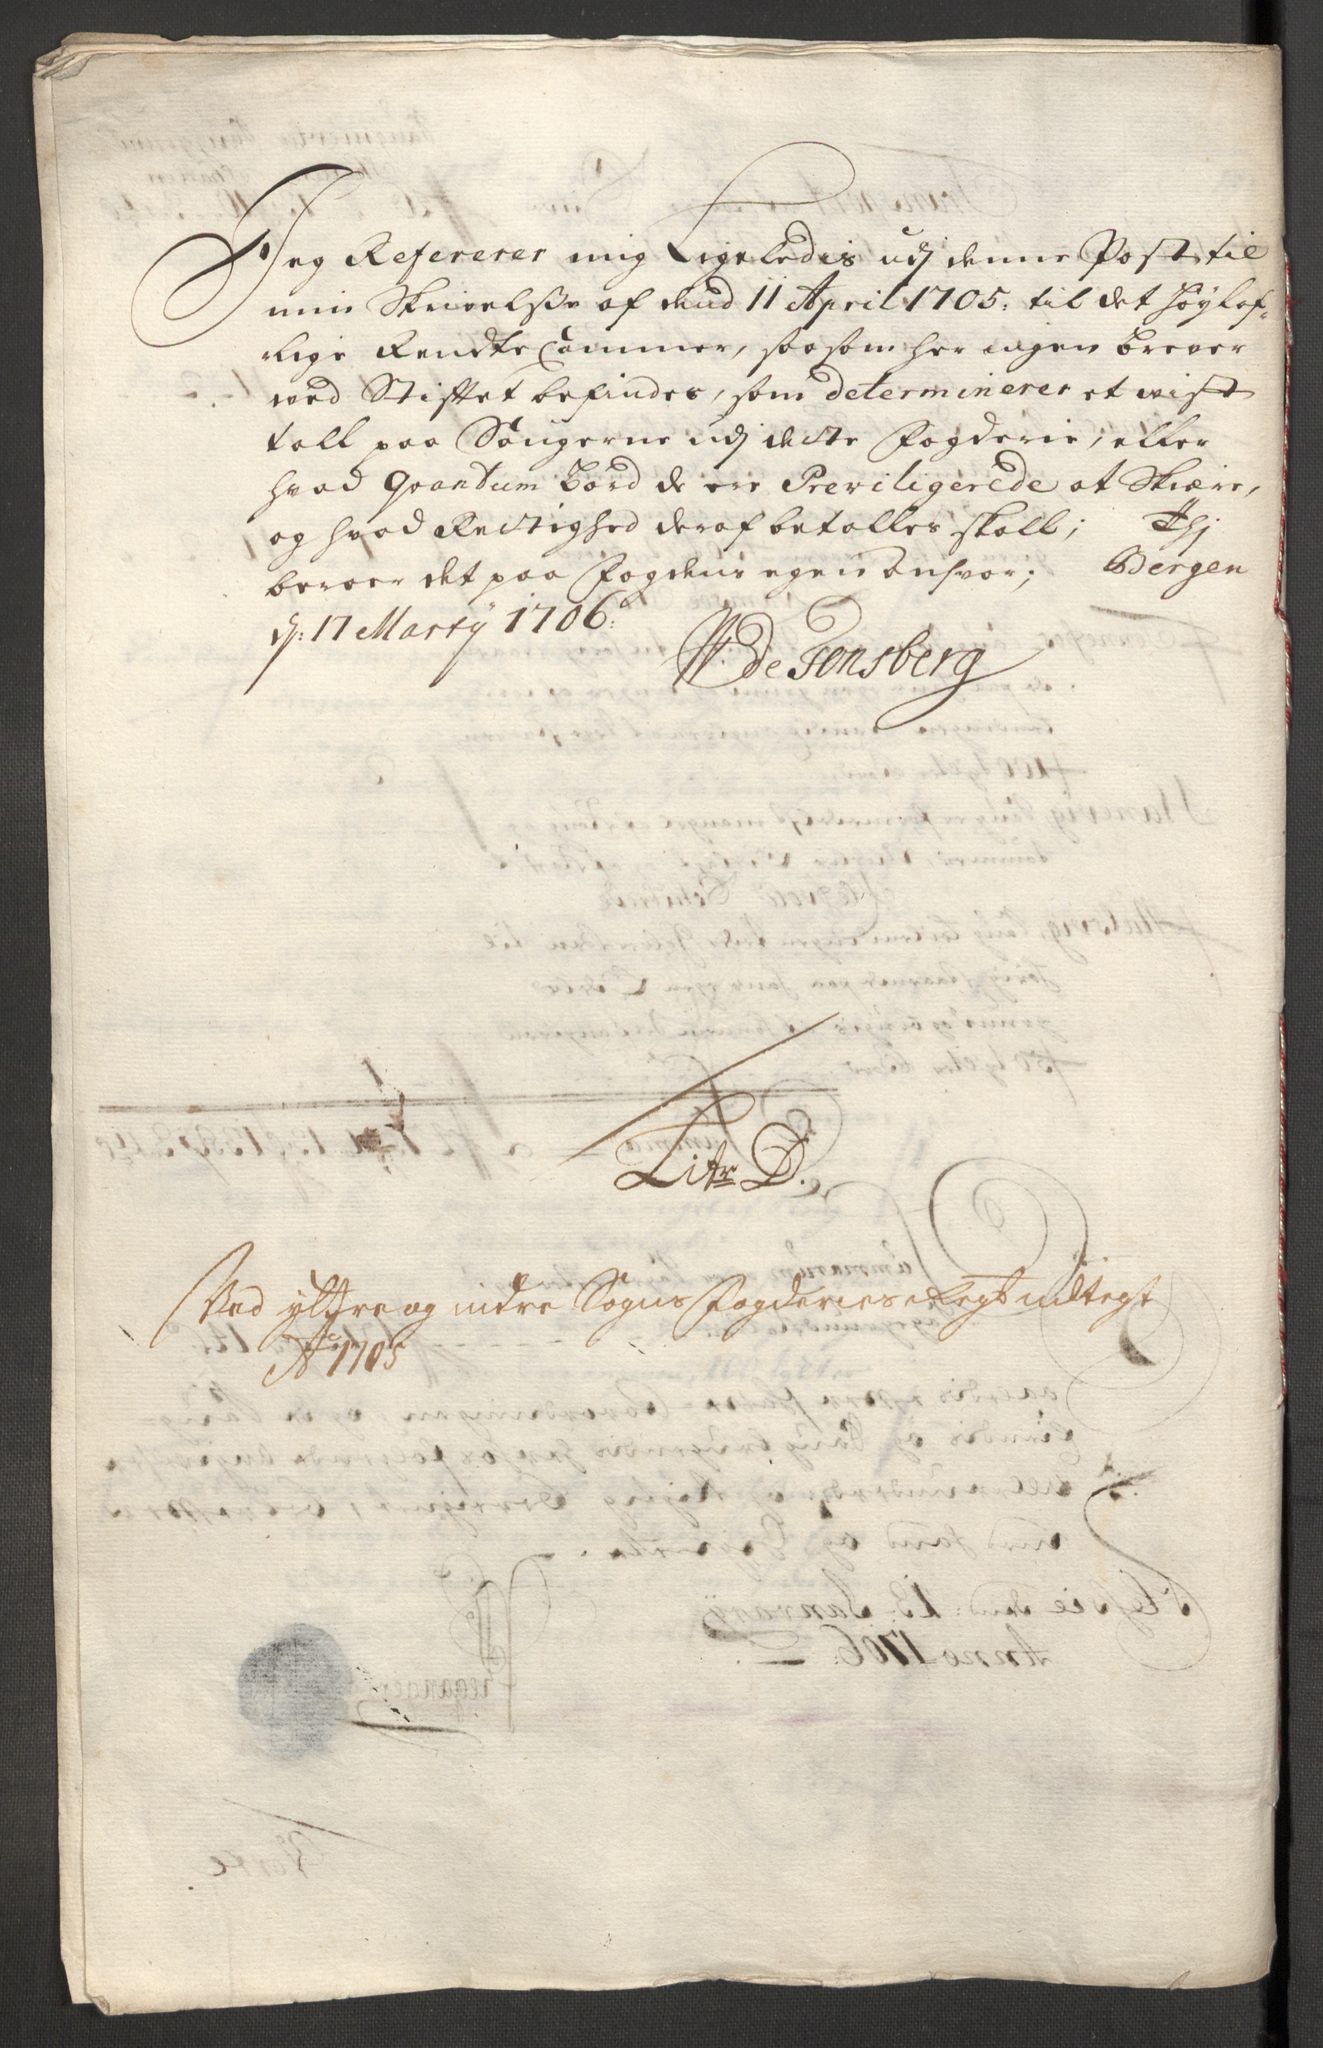 Jeg Refererer mig Ligeledis udj denne Post til
min Skrivelsse af dend 11 April 1705: til det Høylof-
lige Rendte Cammer, saasom her ingen brever
ved Stiftet befindes, som determinerer et vist
tall paa Saugerne udj dette Fogderie, eller
hvad Qvantum Bord de ere Previligerede at Skiære,
og hvad Rettighed deraf betalles skall; Thj
beroer det paa Fogdens egen ansvar; Bergen
d: 17 Martij 1706.
W: de Tonsberg
Litr D.
Ved yttre og indre Sogns Fogderies Regnskab
Ao 1705